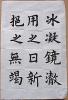 冰凝鏡澈
用之日新
挹之無竭